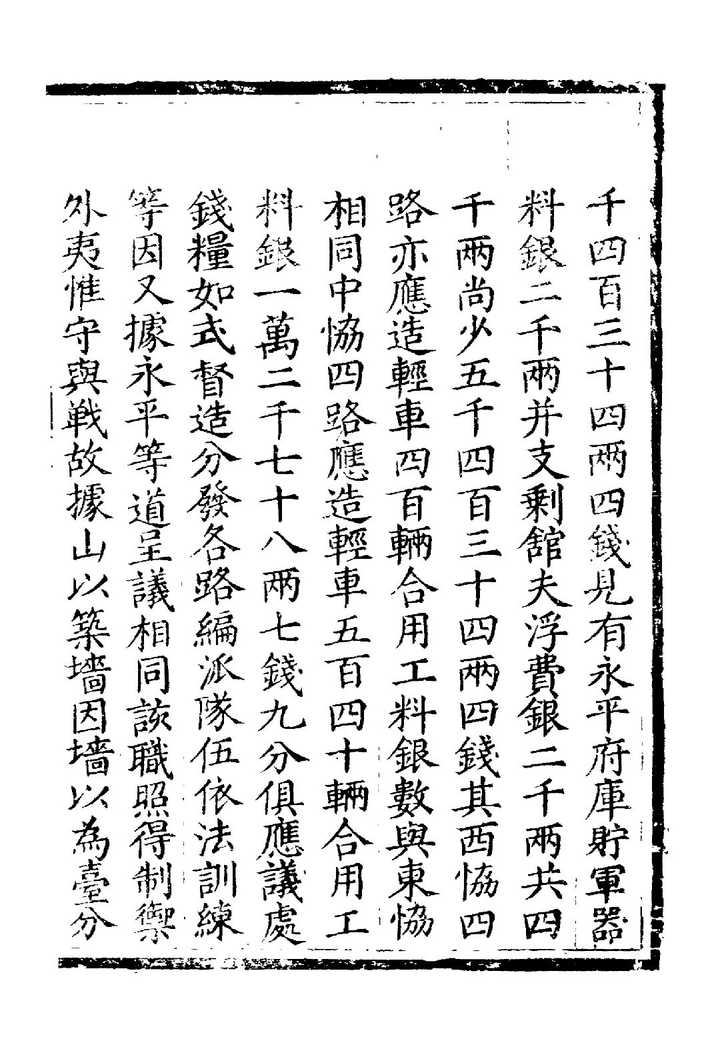 千四百三十四兩四錢見有永平府庫貯軍器
料銀二千兩并支剩舘夫浮費銀二千兩共四
千兩尚少五千四百三十四兩四錢其西恊四
路亦應造輕車四百輛合用工料銀數與東恊
相同中恊四路應造輕車五百四十輛合用工
料銀一萬二千七十八兩七錢九分俱應議處
錢糧如式督造分發各路編派隊伍依法訓練
等因又據永平等道呈議相同該職照得制禦
外夷惟守與戰故據山以築墻因墻以為臺分